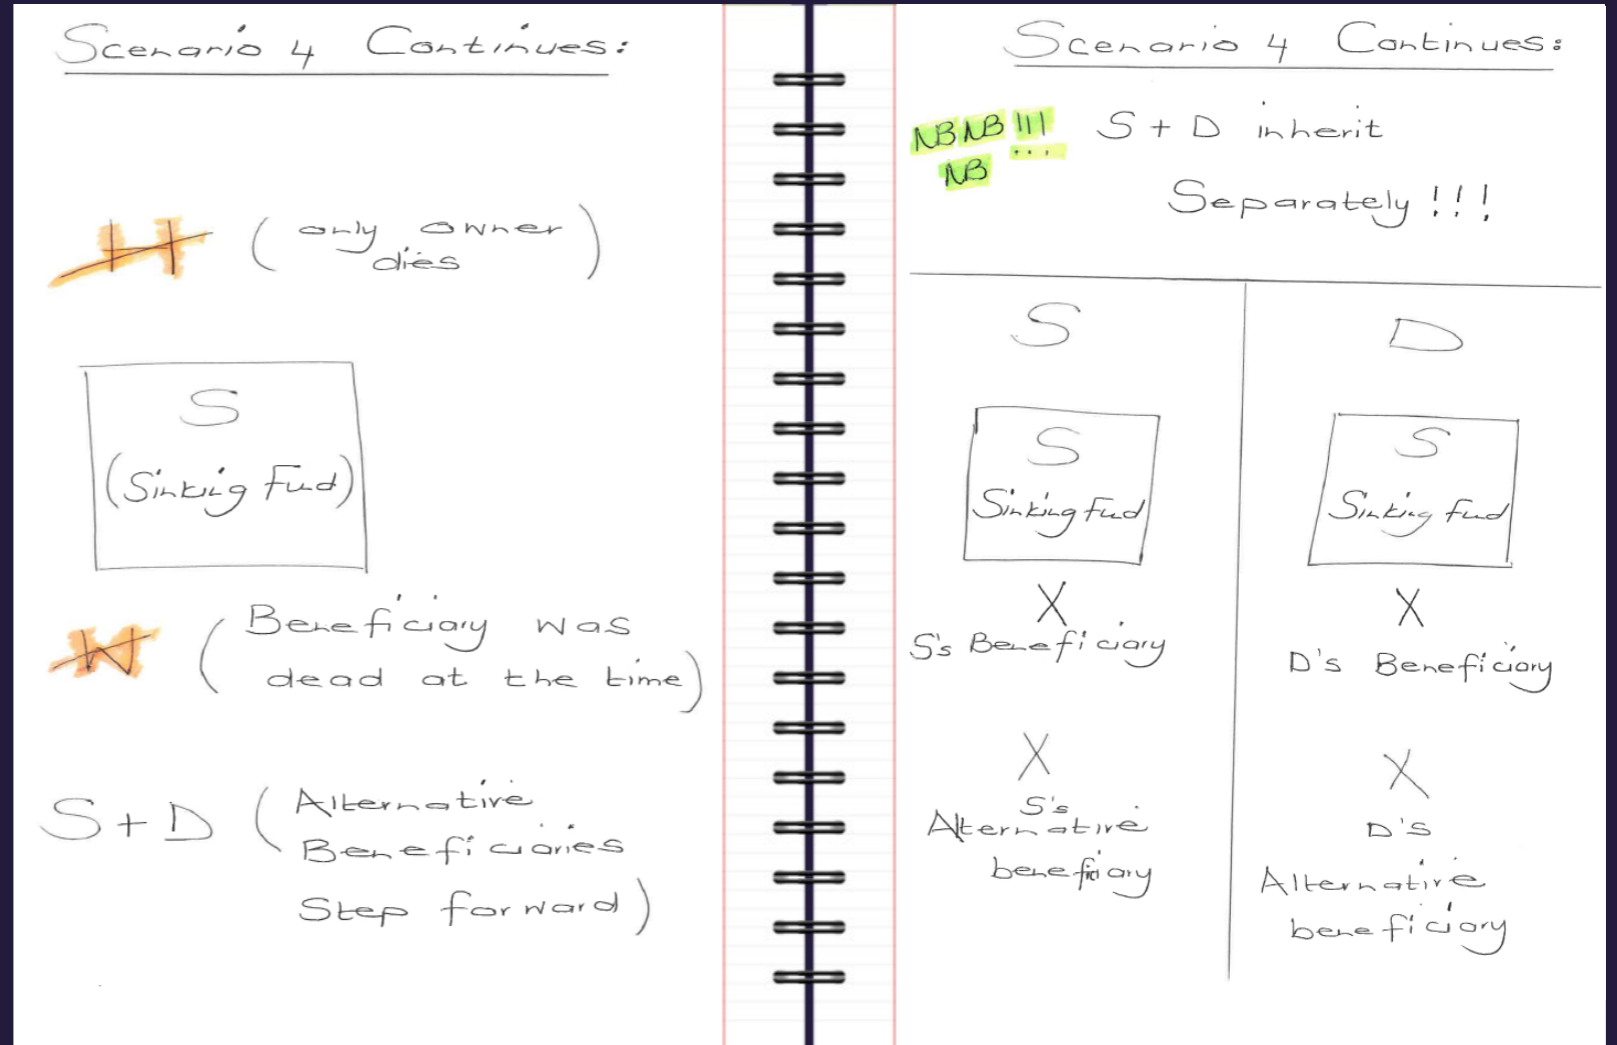 Scenario 4 Continues:
H (only owner
dies)
S
(Sinking Fund)
W (Beneficiary was
dead at the time)
S + D (Alternative
Beneficiaries
Step forward)
Scenario 4 Continues:
NB NB !!! S + D inherit
NB
Separately !!!
S
S
Sinking Fund
X
S's Beneficiary
X
S's
Alternative
beneficiary
D
S
Sinking Fund
X
D's Beneficiary
X
D's
Alternative
beneficiary